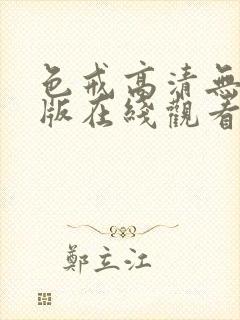 色戒高清無
版在綫觀看
鄭立江